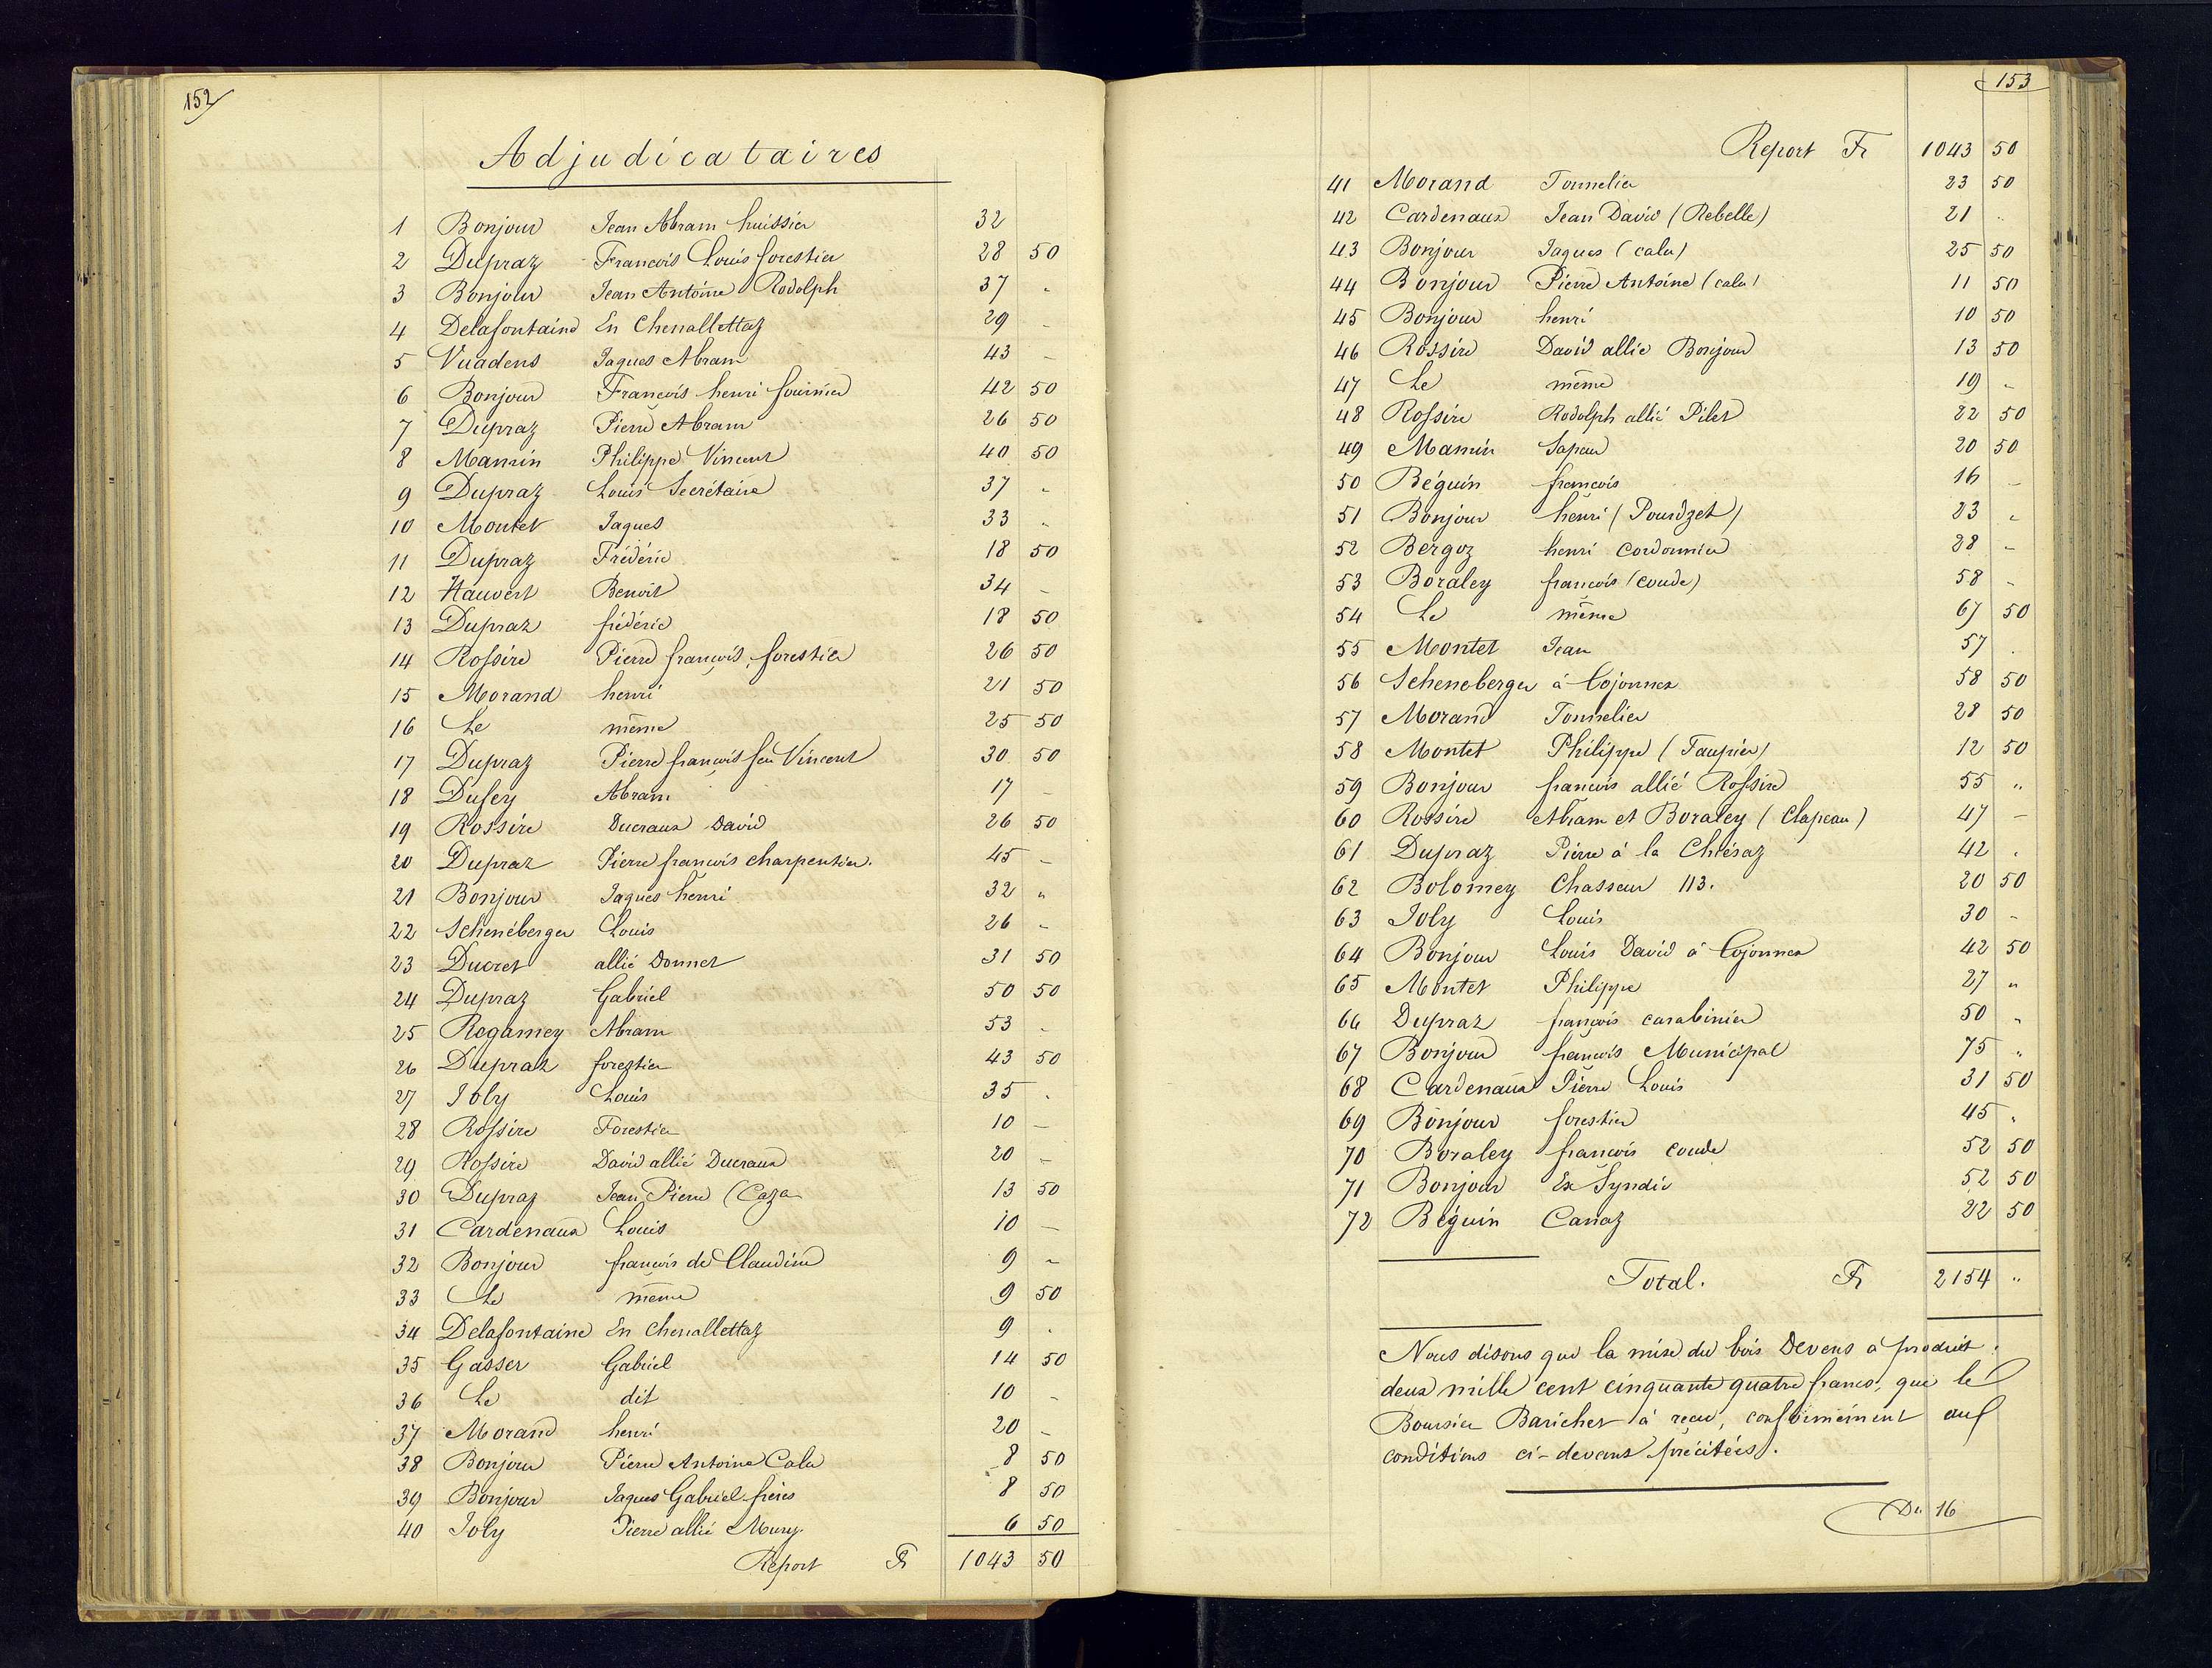 152
Adjudicataires
1 Bonjour Jean Abram huissier 32
2 Dupraz François Louis forestier 28 50
3 Bonjour Jean Antoine Rodolph 37 "
4 Delafontaine En Chenallettaz 29 -
5 Vuadens Jaques Abram 43 -
6 Bonjour François henri fournier 42 50
7 Dupraz Pierre Abram 26 50
8 Mamin Philippe Vincent 40 50
9 Dupraz Louis Secrétaire 37 "
10 Montet Jaques 33 "
11 Dupraz Frédéric 18 50
12 Hauvert Benoit 34 -
13 Dupraz frédéric 18 50
14 Rossire Pierre françois, forestier 26 50
15 Morand henri 21 50
16 Le même 25 50
17 Dupraz Pierre françois feu Vincent 30 50
18 Dufey Abram 17 -
19 Rossire Ducraux David 26 50
20 Dupraz Pierre françois charpentier. 45 -
21 Bonjour Jaques henri 32 "
22 Scheneberger Louis 26 -
23 Ducret allié Donnet 31 50
24 Dupraz Gabriel 50 50
25 Regamey Abram 53 -
26 Dupraz forestier 43 50
27 Joly Louis 35 "
28 Rossire Forestier 10 -
29 Rossire David allié Ducraux 20 -
30 Dupraz Jean Pierre (Caza 13 50
31 Cardenaux Louis 10 -
32 Bonjour françois de Claudine 9 -
33 Le même 9 50
34 Delafontaine En Chenallettaz 9 "
35 Gasser Gabriel 14 50
36 Le dit 10 -
37 Morand henri 20 -
38 Bonjour Pierre Antoine Calu 8 50
39 Bonjour Jaques Gabriel frères 8 50
40 Joly Pierre allié Mury. 6 50
Report Fr 1043 50
153
Report Fr 1043 50
41 Morand Tonnelier 23 50
42 Cardenaux Jean David (Rebelle) 21 "
43 Bonjour Jaques (calu) 25 50
44 Bonjour Pierre Antoine (calu) 11 50
45 Bonjour henri 10 50
46 Rossire David allié Bonjour 13 50
47 Le même 19 -
48 Rossire Rodolph allié Pilet 22 50
49 Mamin Sapeur 20 50
50 Béguin françois 16 -
51 Bonjour henri (Pourdzet) 23 "
52 Bergoz henri cordonnier 28 -
53 Boraley françois (coude) 58 -
54 Le même 67 50
55 Montet Jean 57 .
56 Scheneberger à Cojonnex 58 50
57 Morand Tonnelier 28 50
58 Montet Philippe (Taupier) 12 50
59 Bonjour françois allié Rossire 55 "
60 Rossire Abram et Boraley (Clapeau) 47 -
61 Dupraz Pierre à la Chiésaz 42 "
62 Bolomey Chasseur 113. 20 50
63 Joly Louis 30 -
64 Bonjour Louis David à Cojonnex 42 50
65 Montet Philippe 27 "
66 Dupraz françois carabinier 50 "
67 Bonjour françois Municipal 75 "
68 Cardenaux Pierre Louis 31 50
69 Bonjour forestier 45 "
70 Boraley françois coude 52 50
71 Bonjour Ex Syndic 52 50
72 Béguin Canaz 22 50
Total. Fr 2154 "
Nous disons que la mise du bois Devens à produit
deux mille cent cinquante quatre francs, que le
Boursier Barichet à reçu, conformément aux
conditions ci-devant précitées.
Du 16